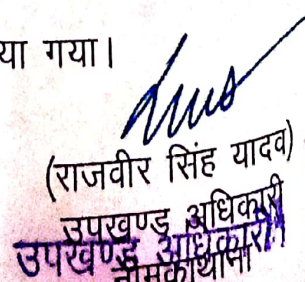 या गया।
(राजवीर सिंह यादव)
उपखण्ड अधिकारी
उपखण्ड अधिकारी
नीमकाथाना